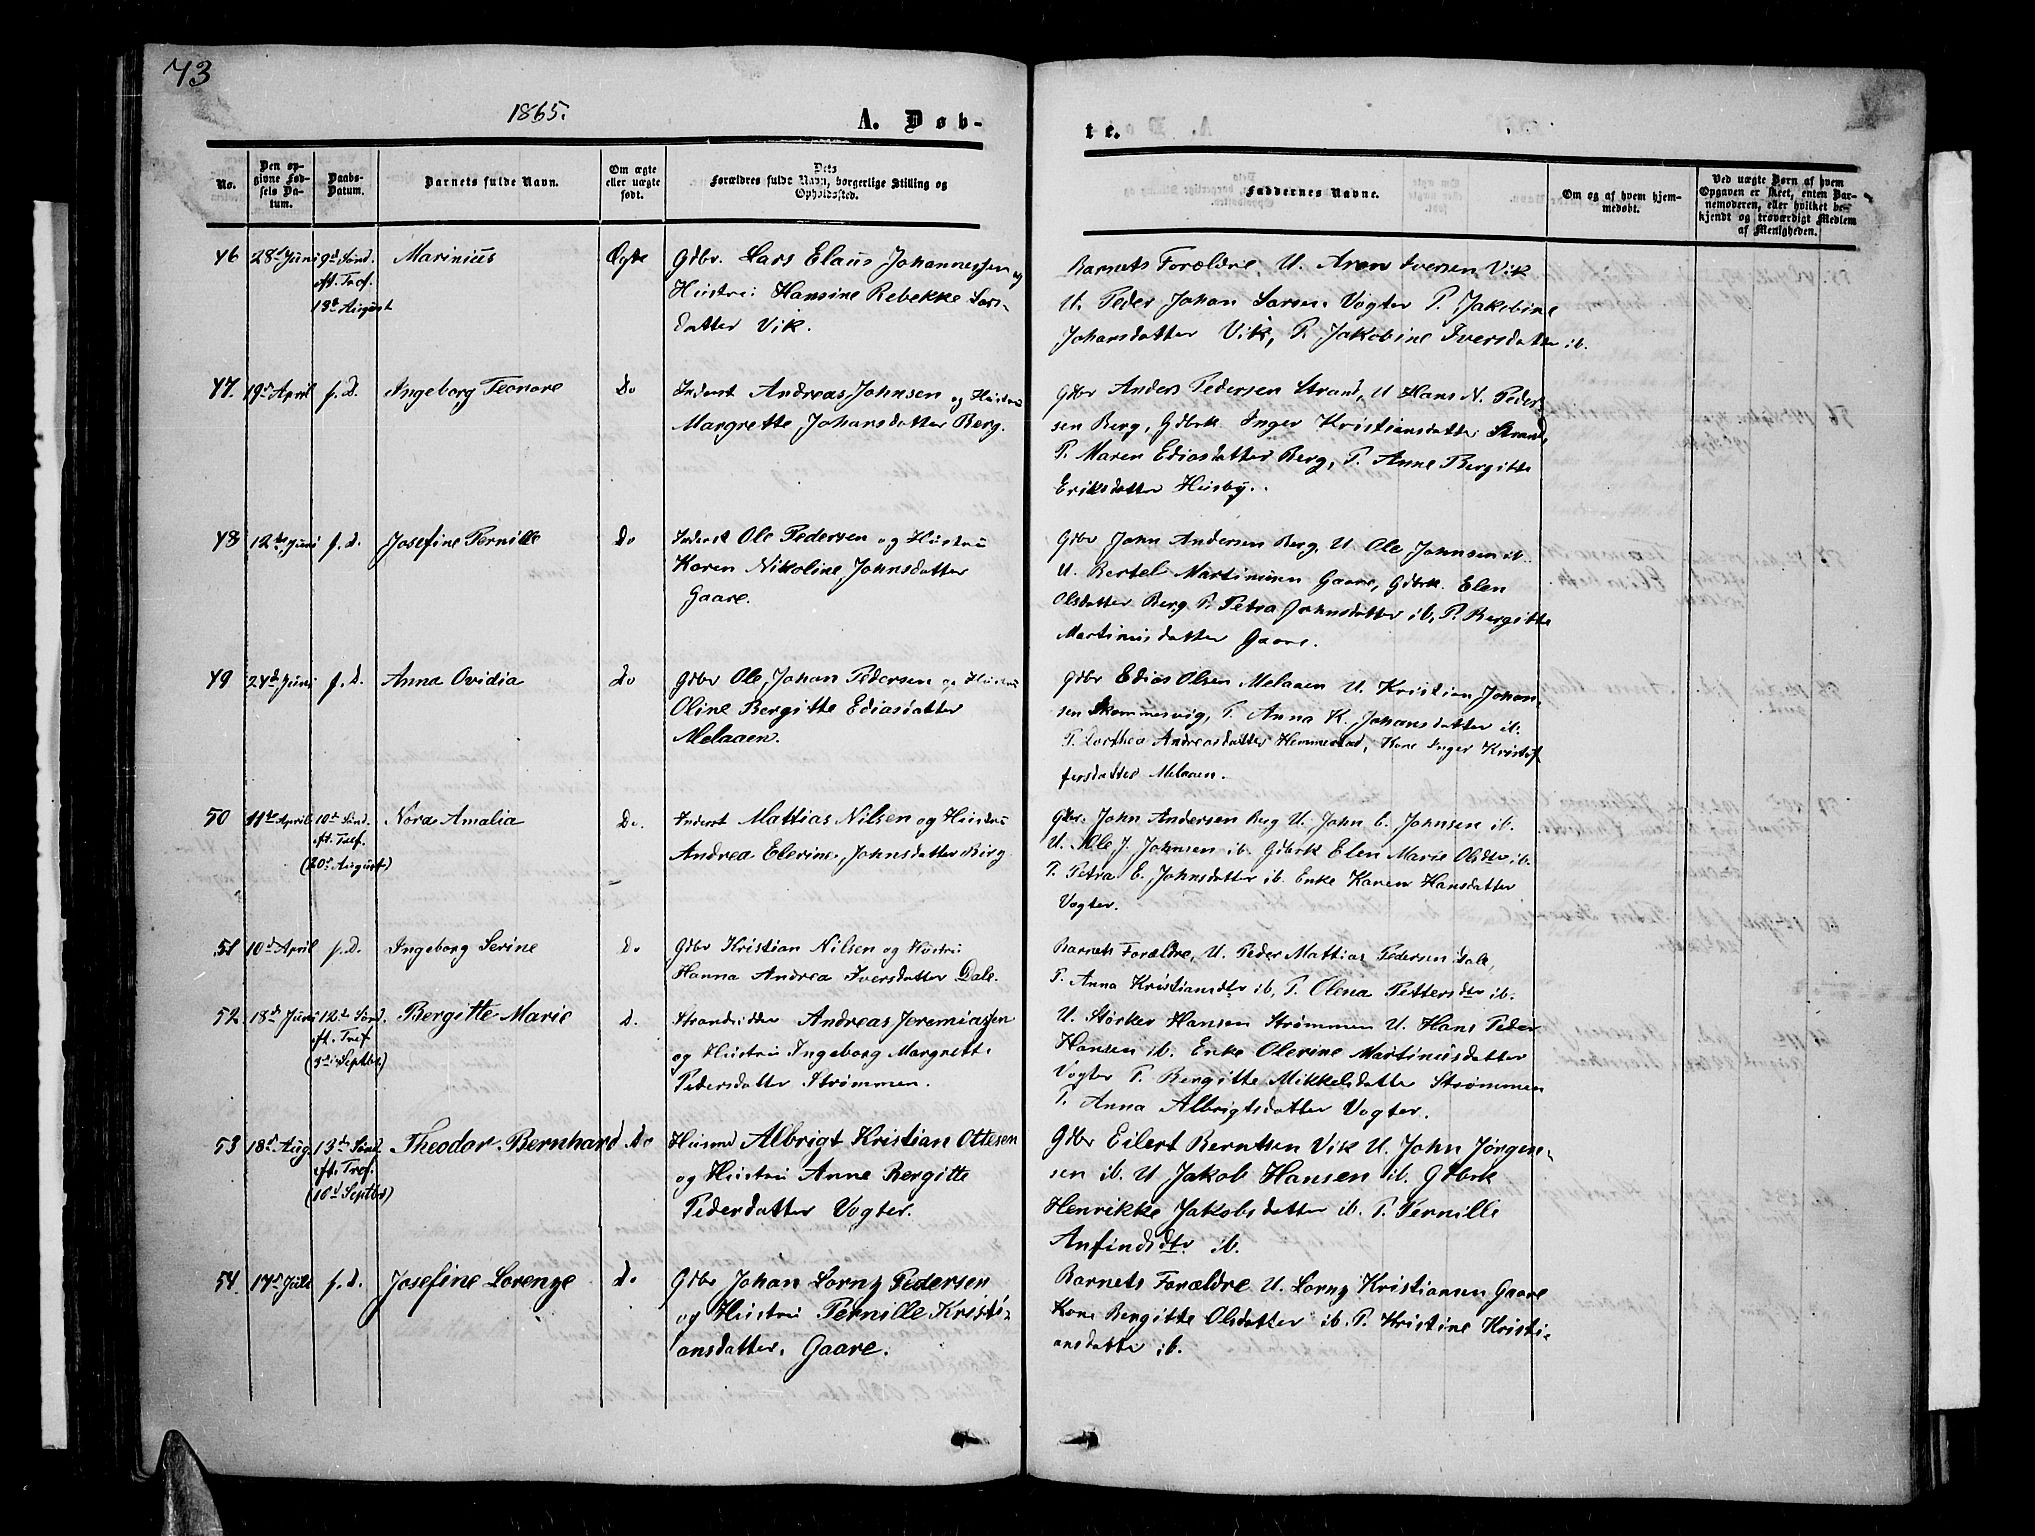 73
1865.
A. Døb-
te.
No.
Den op-
givne Fød-
sels Da-
tum.
Daabs-
Datum.
Barnets fulde Navn.
Om ægte
eller uægte
født.
Dets
Forældres fulde Navn, borgerlige Stilling og
Opholdssted.
Faddernes Navne.
Om og af hvem hjem-
medøbt.
Ved uægte Børn af hvem
Opgaven er skeet, enten Bar-
nemoderen, eller hvilket be-
kjendt og troværdigt Medlem
af Menigheden.
46 28d Juni 9d Sönd. Marinius Ægte Gdbr. Lars Elaus Johannessen og
eft. Tref. Hustru Hansine Rebekke Lars-
13de August datter Vik.
Barnets Forældre, U. Aron Iversen Vik
U. Peder Johan Larsen Vogter P. Jakobine
Johansdatter Vik, P. Jakobine Iversdatter ib.
47. 19d April s. D. Ingeborg Leonore Do Inderst Andreas Johnsen og Hustru
Margrette Johansdatter Berg.
Gdbr Anders Pedersen Strand, U Hans N. Peder-
sen Berg, Gdbrk. Inger Kristiansdatter Strand,
P. Maren Ediasdatter Berg, P. Anne Bergitte
Eriksdatter Husby.
48 12te Juni s. D. Josefine Pernille Do Inderst Ole Pedersen og Hustru
Karen Nikoline Johnsdatter
Gaare.
Gdbr John Andersen Berg, U. Ole Johnsen ib.
U. Bertel Martinusen Gaare, Gdbrk. Elen
Olsdatter Berg P. Petra Johnsdatter ib, P. Bergitte
Martinusdatter Gaare.
49 24d Juni s. D. Anna Ovidia Do Gdbr Ole Johan Pedersen og Hustru
Oline Bergitte Ediasdatter
Melaaen.
Gdbr Edias Olsen Melaaen U. Kristian Johan-
sen Skommesvig, P. Anna K. Johansdatter ib.
P. Dorthea Andreasdatter Hemmestad, Kone Inger Kristof-
fersdatter Melaaen.
50 11te April 10d Sönd. Nora Amalia Do. Inderst Mattias Nilsen og Hustru
eft. Tref. Andrea Elerine Johnsdatter Berg
(20d August)
Gdbr. John Andersen Berg U. John C. Johnsen ib.
U. Ole J. Johnsen ib. Gdbrk Elen Marie Olsdtr ib.
P. Petra E. Johnsdatter ib. Enke Karen Hansdatter
Vogter.
51 10d April s. D. Ingeborg Serine Do Gdbr Kristian Nilsen og Hustru
Hanna Andrea Iversdatter Dale.
Barnets Forældre, U. Peder Mattias Pedersen Dale,
P. Anna Kristiansdtr ib, P. Olena Pettersdtr ib.
52 18d Juni 12te Sönd. Bergitte Marie D. Strandsidder Andreas Jeremiassen
eft. Tref og Hustru Ingeborg Margrette
(3d Septbr) Pedersdatter Strømmen.
U. Størker Hansen Strømmen U. Hans Peder
Hansen ib. Enke Olerine Martinusdatter
Vogter P. Bergitte Mikkelsdatter Strømmen
P. Anna Albrigtsdatter Vogter.
53 18d Aug. 13de Sönd. Theodor Bernhard Do Husmd Albrigt Kristian Ottesen
eft. Tref. og Hustru Anne Bergitte
(10d Septbr) Pedersdatter Vogter.
Gdbr Eilert Berntsen Vik U. John Jørgen-
sen ib. U Jakob Hansen ib. Gdbrk
Henrikke Jakobsdatter ib. P. Pernille
Anfindsdtr ib.
54. 17d Juli s. d. Josefine Lorenze Do Gdbr Johan Lorny Pedersen
og Hustru Pernille Kristi-
ansdatter, Gaare.
Barnets Forældre U. Lorny Kristiansen Gaare
Kone Bergitte Olsdatter ib. P. Kristine Kristi-
ansdatter ib.